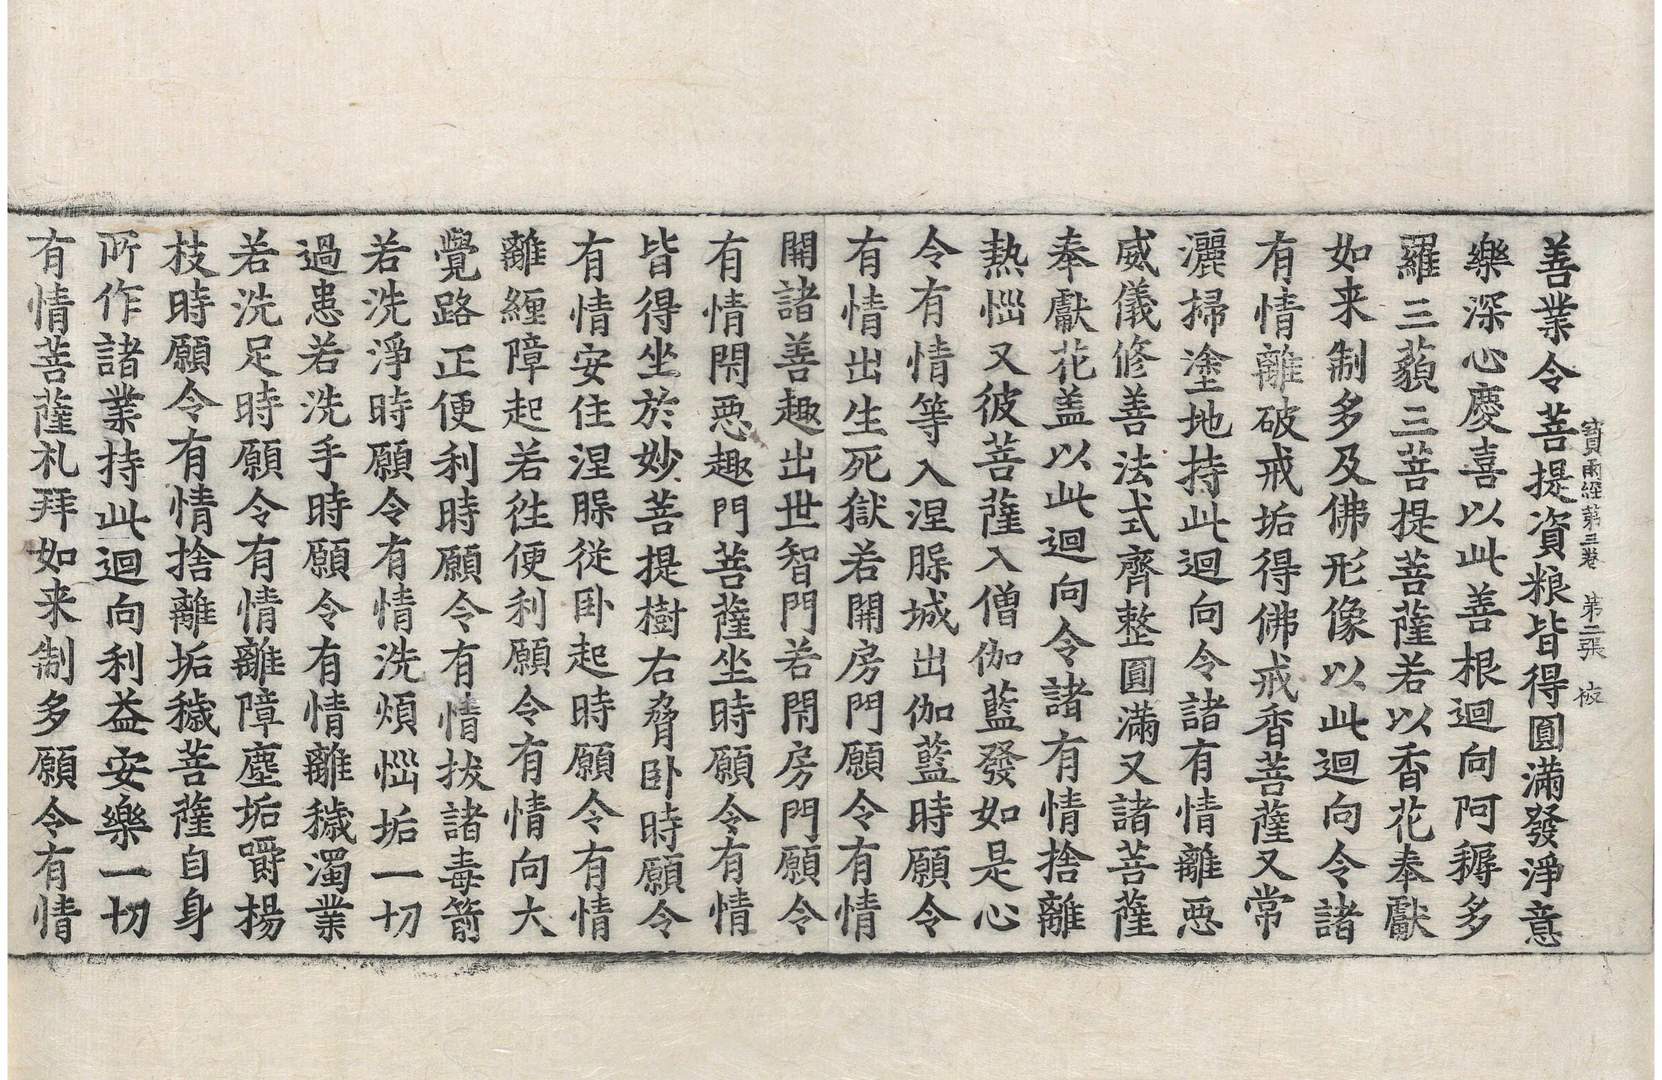 善業令菩提資粮皆得圓滿發淨意
寶雨經第三卷 第二張 彼
樂深心慶喜以此善根迴向阿耨多
羅三藐三菩提菩薩若以香花奉獻
如来制多及佛形像以此迴向令諸
有情離破戒垢得佛戒香菩薩又常
灑掃塗地持此迴向令諸有情離惡
威儀修善法式齊整圓滿又諸菩薩
奉獻花盖以此迴向令諸有情捨離
熱惱又彼菩薩入僧伽藍發如是心
令有情等入涅槃城出伽藍時願令
有情出生死獄若開房門願令有情
開諸善趣出世智門若閇房門願令
有情閇惡趣門菩薩坐時願令有情
皆得坐於妙菩提樹右脅卧時願令
有情安住涅槃從卧起時願令有情
離纏障起若往便利願令有情向大
覺路正便利時願令有情拔諸毒箭
若洗淨時願令有情洗煩惱垢一切
過患若洗手時願令有情離穢濁業
若洗足時願令有情離障塵垢嚼楊
枝時願令有情捨離垢穢菩薩自身
所作諸業持此迴向利益安樂一切
有情菩薩礼拜如来制多願令有情